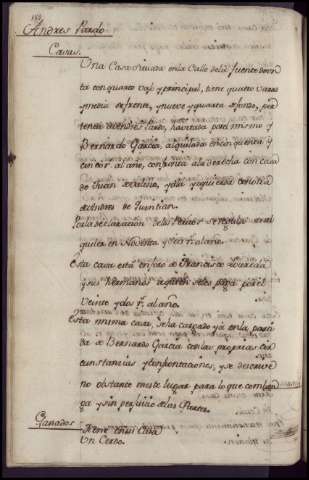 Andres Pardo
Casas.
Una Casa situada en la Calle de la fuente
con quarto vajo y principal, tiene quatro varas
y media de frente, y nueve y quarta de fondo, per
tenece Andres Pardo, havitada por el mismo y
Bernardo Garcia, alquilada en cinquenta y
al año, confronta a la derecha con casa
de Juan y a la izquierda con otra
de de
Por la declaracion de los Peritos se regula
quiler en Noventa y seis rr.s al año.
Esta casa está en favor de Francisco
y sus hermanos a quien se les paga por él
Veinte y dos rr.s al año.
Esta misma casa, se ha cargado ya en la parti
da de Bernardo Garcia con las propias cir
cunstancias y confrontaciones, y se
no obstante en este lugar para lo que
ga y sin perjuicio de las Partes.
Ganados
Tiene en su Casa
Un Cerdo.